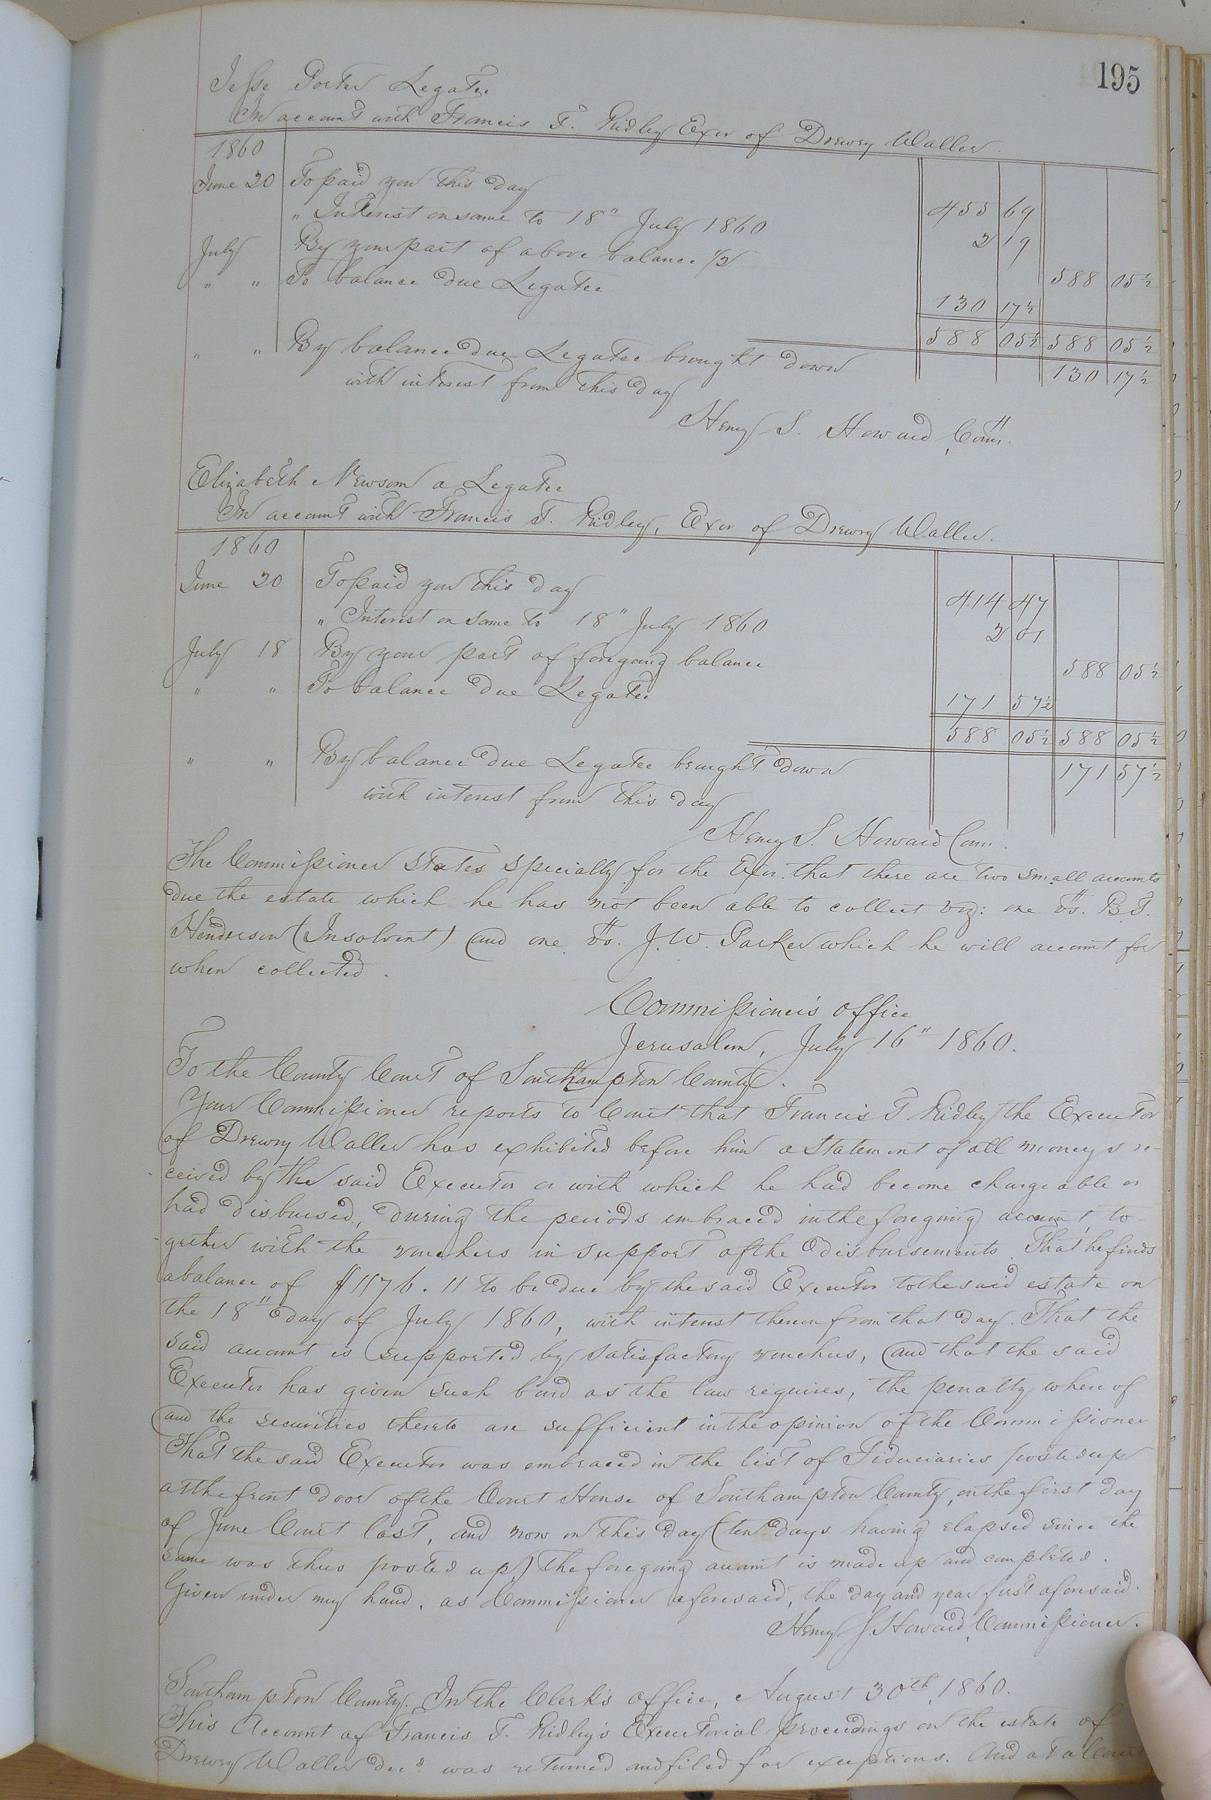 195
Jesse Porter Legatee
In account with Francis T. Ridley Exor of Drewry Waller.
1860
June 20 To paid you this day 455 69
" Interest on same to 18" July 1860 2 19
July By your part of above balance 1/2 588 05½
" " To balance due Legatee 130 17½
588 05½ 588 05½
" " By balance due Legatee brought down 130 17½
with interest from this day
Henry S. Howard, Comr.
Elizabeth Newsom a Legatee
In account with Francis T. Ridley, Exor of Drewry Waller.
1860
June 20 To paid you this day 414 47
" Interest on same to 18" July 1860 2 01
July 18 By your part of foregoing balance 588 05½
" " To balance due Legatee 171 57½
588 05½ 588 05½
" " By balance due Legatee brought down 171 57½
with interest from this day
Henry S. Howard Com.
The Commissioner states specially for the Exor. that there are two small accounts
due the estate which he has not been able to collect viz: one vs. B.T.
Henderson (Insolvent) and one vs. J.W. Parker which he will account for
when collected.
Commissioner's office
Jerusalem, July 16" 1860.
To the County Court of Southampton County.
Your Commissioner reports to Court that Francis T. Ridley the Executor
of Drewry Waller has exhibited before him a statement of all moneys re-
ceived by the said Executor or with which he had become chargeable or
had disbursed, during the periods embraced in the foregoing account, to-
gether with the vouchers in support of the disbursements. That he finds
a balance of $1176.11 to be due by the said Executor to the said estate on
the 18th day of July 1860, with interest thereon from that day. That the
said account is supported by satisfactory vouchers, and that the said
Executor has given such bond as the law requires, the penalty whereof
and the securities thereto are sufficient in the opinion of the Commissioner
That the said Executor was embraced in the list of Fiduciaries posted up
at the front door of the Court House of Southampton County, on the first day
of June Court last, and now on this day (ten days having elapsed since the
same was thus posted up) the foregoing account is made up and completed.
Given under my hand, as Commissioner aforesaid, the day and year first aforesaid.
Henry S. Howard, Commissioner.
Southampton County. In the Clerk's office, August 30th, 1860.
This Account of Francis T. Ridley's Executorial proceedings on the estate of
Drewry Waller decd was returned and filed for exceptions. And at a Court